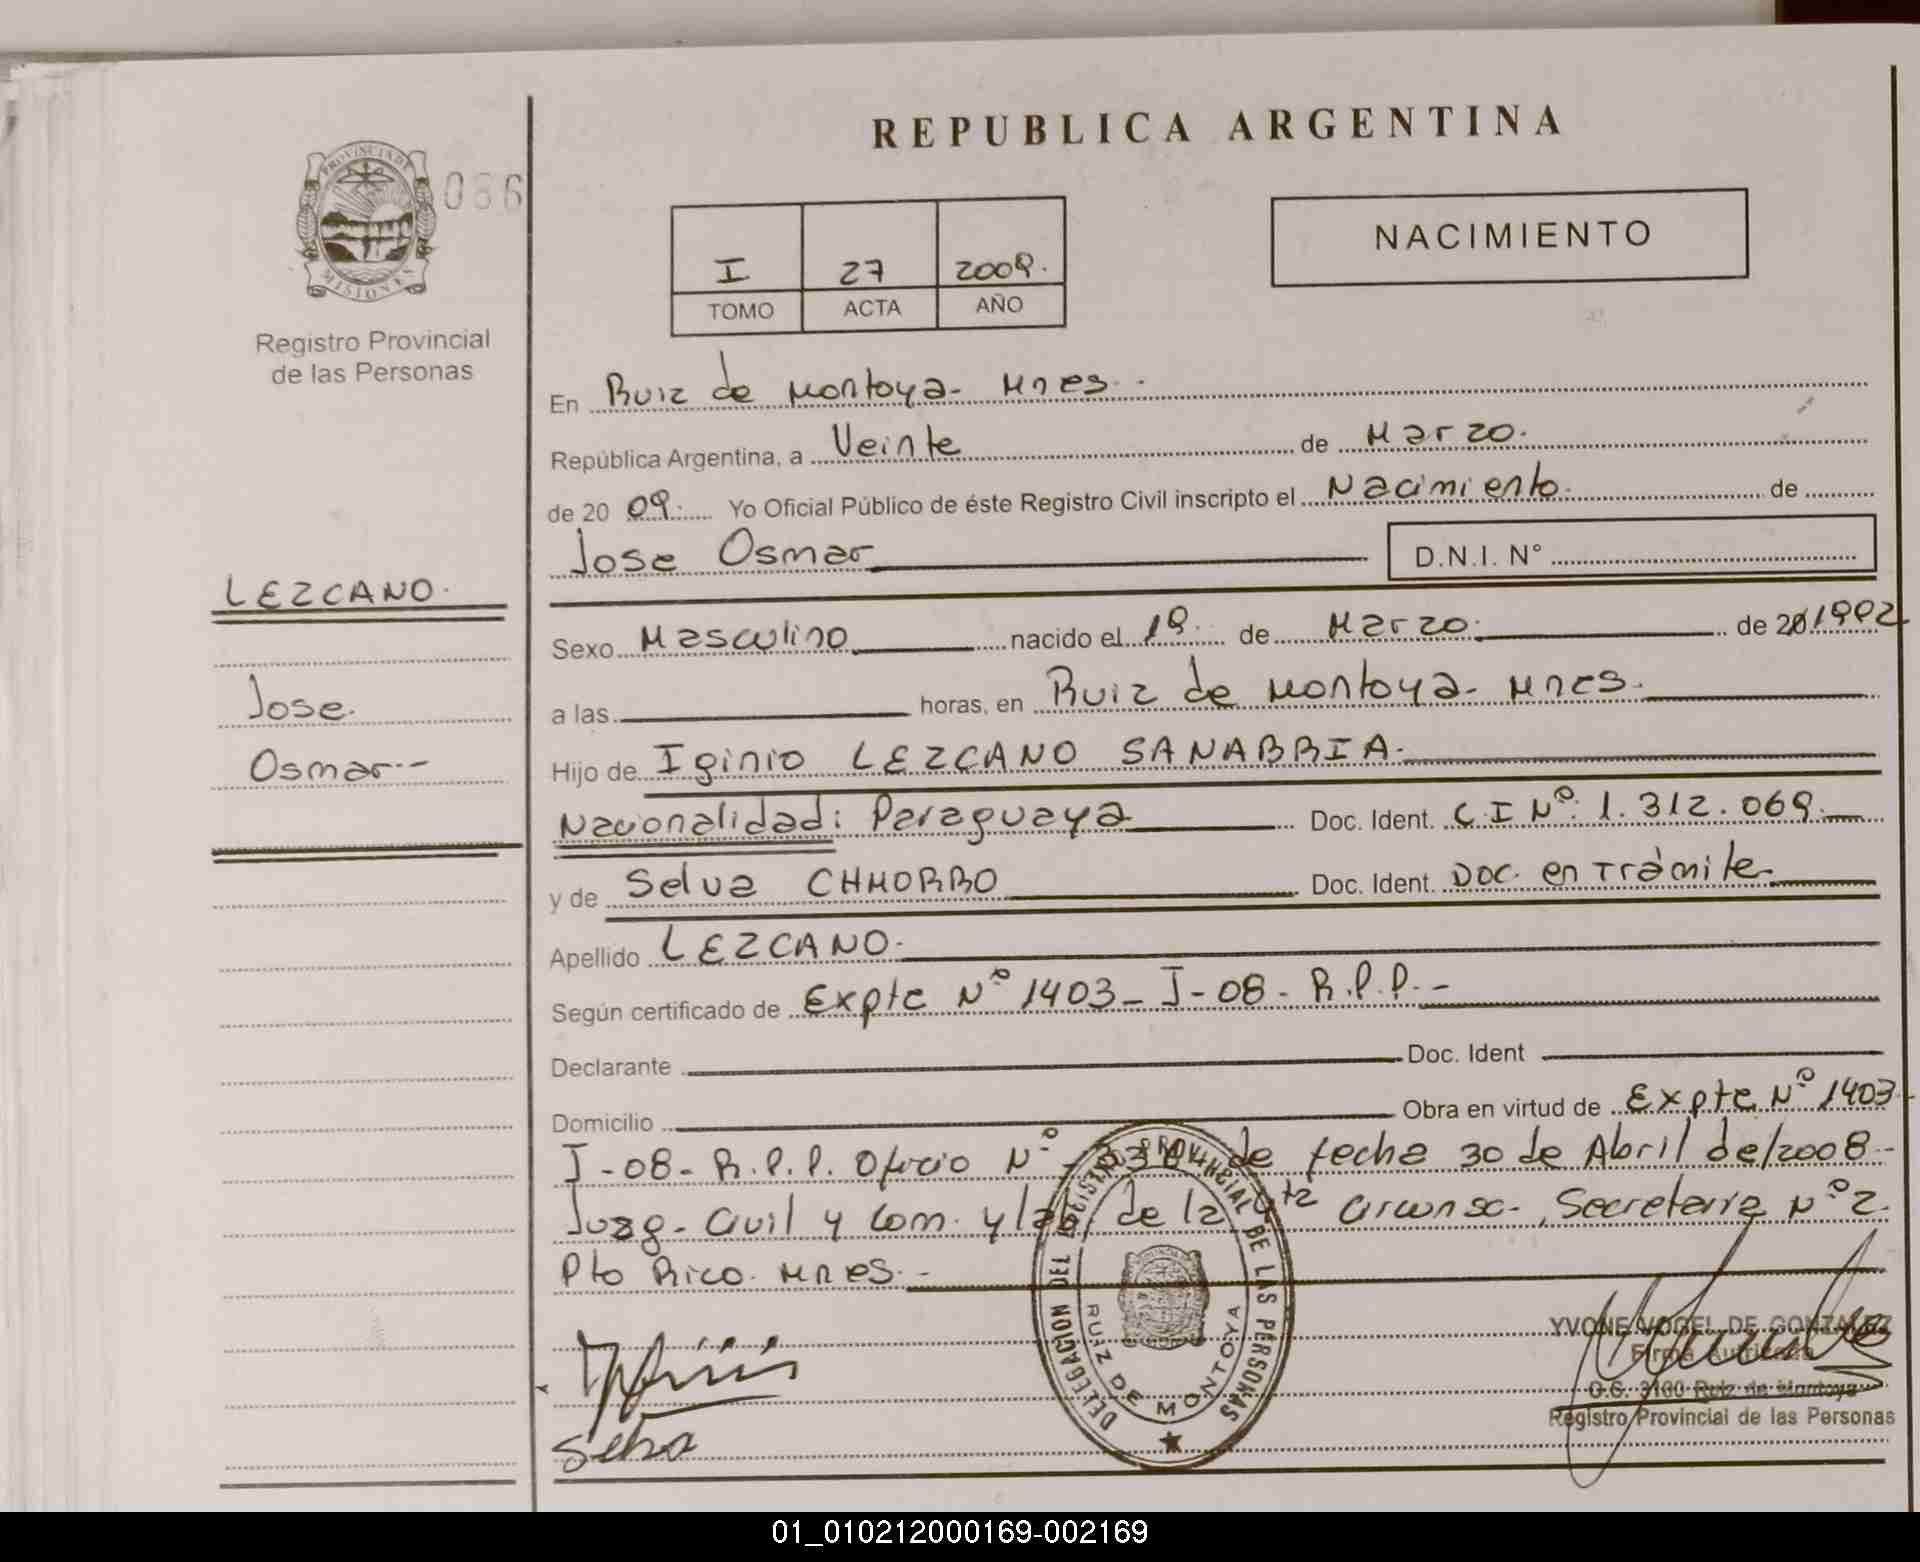 REPUBLICA ARGENTINA
PROVINCIA DE
MISIONES
036
Registro Provincial
de las Personas
I 27 2009.
TOMO ACTA AÑO
NACIMIENTO
En Ruiz de Montoya- Mnes.
República Argentina, a Veinte de Marzo.
de 20 09. Yo Oficial Público de éste Registro Civil inscripto el Nacimiento. de
Jose Osmar D.N.I. N°
LEZCANO.
Jose.
Osmar.-
Sexo Masculino nacido el 19 de Marzo. de 20 1992
a las horas, en Ruiz de Montoya- Mnes.
Hijo de Iginio LEZCANO SANABRIA.
Nacionalidad: Paraguaya Doc. Ident. C.I Nº: 1.312.069.
y de Selva CHMORRO Doc. Ident. Doc. en Trámite
Apellido LEZCANO.
Según certificado de Expte Nº 1403- J-08- R.P.P.-
Declarante Doc. Ident
Domicilio Obra en virtud de Expte Nº 1403-
J-08- R.P.P. Oficio Nº de fecha 30 de Abril de/2008.-
Juzg. Civil y Com. y lab. de la 4ta Circunsc., Secretaria Nº 2.
Pto Rico. Mnes.-
DELEGACION DEL REGISTRO PROVINCIAL DE LAS PERSONAS
RUIZ DE MONTOYA
YVONE VOGEL DE GONZALEZ
Firma Autorizada
O.S. 3100 Ruiz de Montoya
Registro Provincial de las Personas
01_010212000169-002169